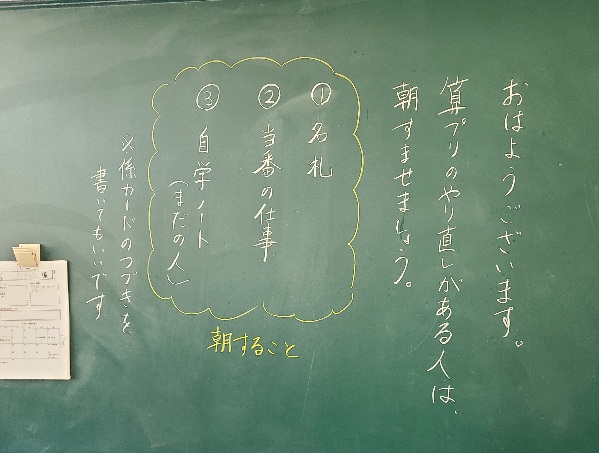 おはようございます。
算プリのやり直しがある人は、
朝すませましょう。
① 名札
② 当番の仕事
③ 自学ノート
(まだの人)
朝すること
※係カードのつづきを
書いてもいいです